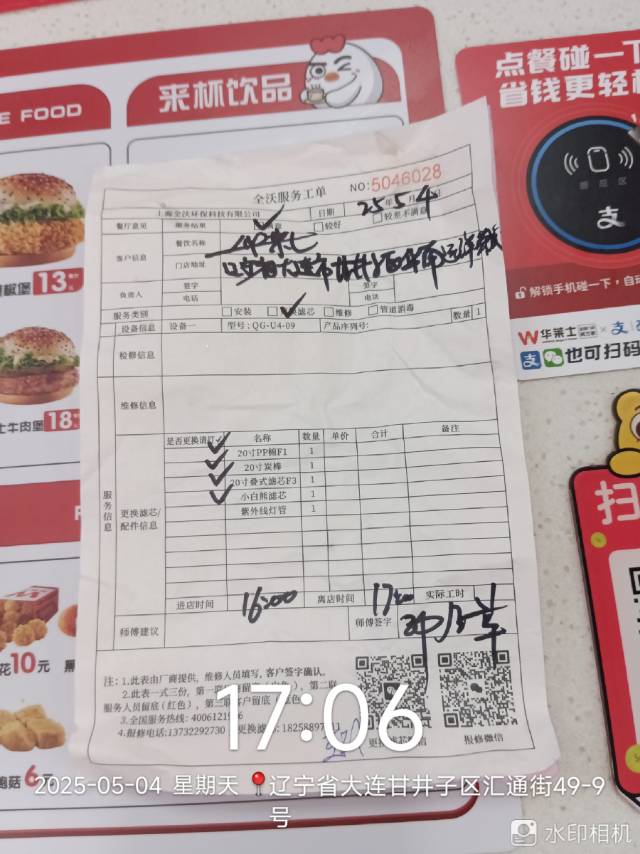 E FOOD
来杯饮品
点餐碰一下
省钱更轻
解锁手机碰一下，自动
华莱士
也可扫码
扫
椒堡
13
士牛肉堡
18
花10元
鸡菇6元
全沃服务工单
NO:5046028
上海全沃环保科技有限公司
日期 25年5月4
餐厅意见
服务结果
较好
较差不满意
客户信息
餐饮名称
门店地址
负责人
签字
电话
签字
电话
服务类别
安装
换滤芯
维修
管道消毒
设备信息
设备一
型号：QG-U4-09
产品序列号：
数量
1
检修信息
维修信息
服务信息
更换滤芯/
配件信息
是否更换请打
名称
数量
单价
合计
备注
20寸PP棉F1 1
20寸炭棒 1
20寸叠式滤芯F3 1
小白熊滤芯 1
紫外线灯管 1
进店时间
16:00
离店时间
17:00
实际工时
师傅建议
师傅签字
注：1.此表由厂商提供，维修人员填写，客户签字确认。
2.此表一式三份，第一联
服务人员留底（红色），第三联客户留底
3.全国服务热线：4006121
4.报修电话:13732292730
更换滤芯:18258897
报修微信
17:06
2025-05-04 星期天 辽宁省大连甘井子区汇通街49-9
号
水印相机